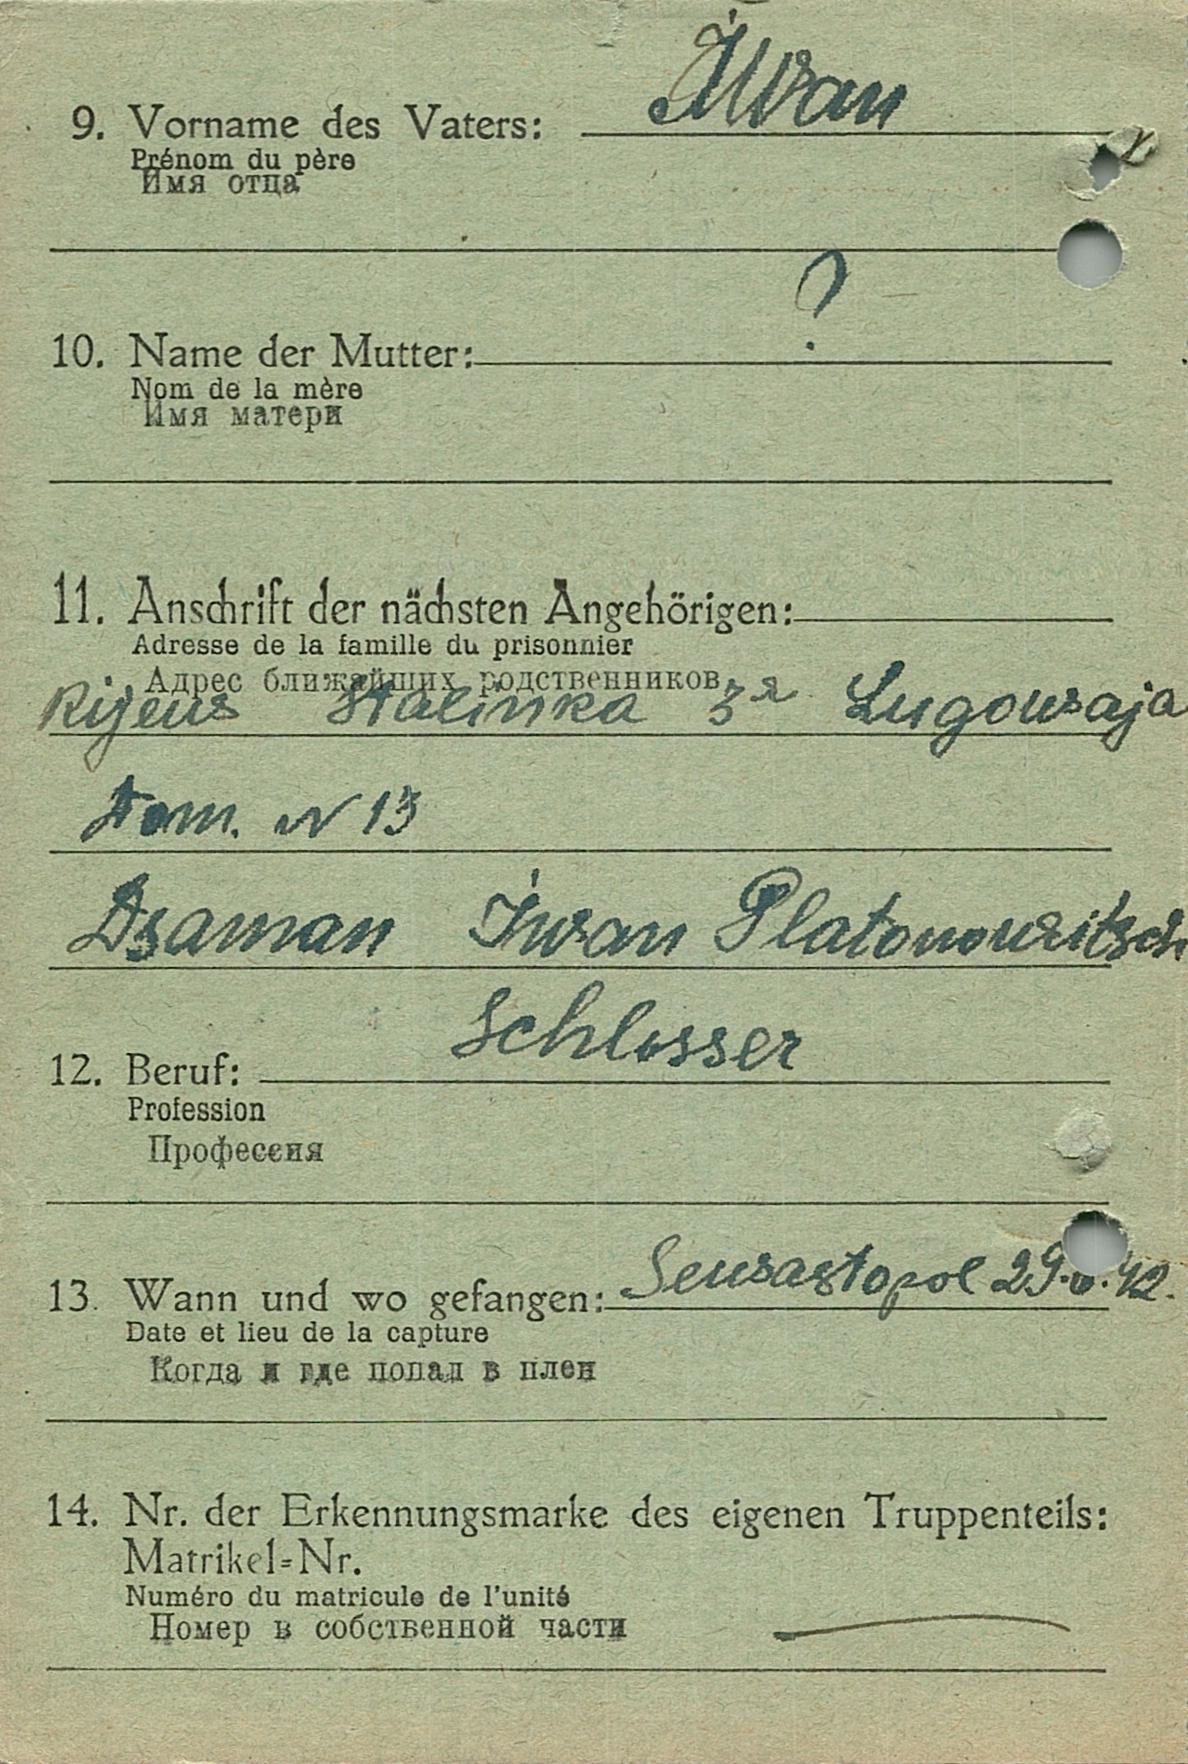 9. Vorname des Vaters: Iwan
Prénom du père
Имя отца
?
10. Name der Mutter:
Nom de la mère
Имя матери
11. Anschrift der nächsten Angehörigen:
Adresse de la famille du prisonnier
Адрес ближайших родственников
Kijeus Stalinka 3я Lugowsaja
Dom. N 13
Dsaman Iwan Platonowitsch
Schlosser
12. Beruf:
Profession
Профессия
13. Wann und wo gefangen: Sewastopol 29.6.42.
Date et lieu de la capture
Когда и где попал в плен
14. Nr. der Erkennungsmarke des eigenen Truppenteils:
Matrikel=Nr.
Numéro du matricule de l'unité
Номер в собственной части